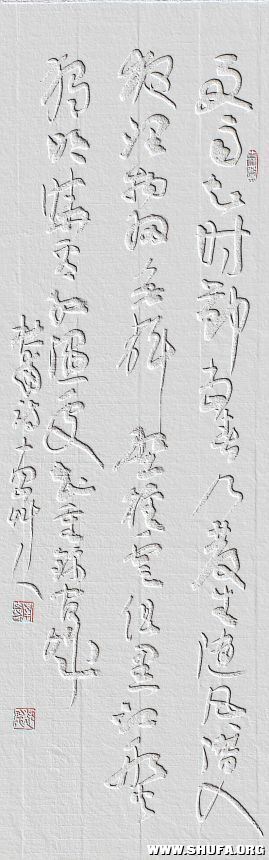 好雨知时節当春乃發生随风潜入
夜润物细无聲野径雲俱黑江船火
独明晓看红湿处花重錦官城
杜甫诗一首
WWW.SHUFA.ORG